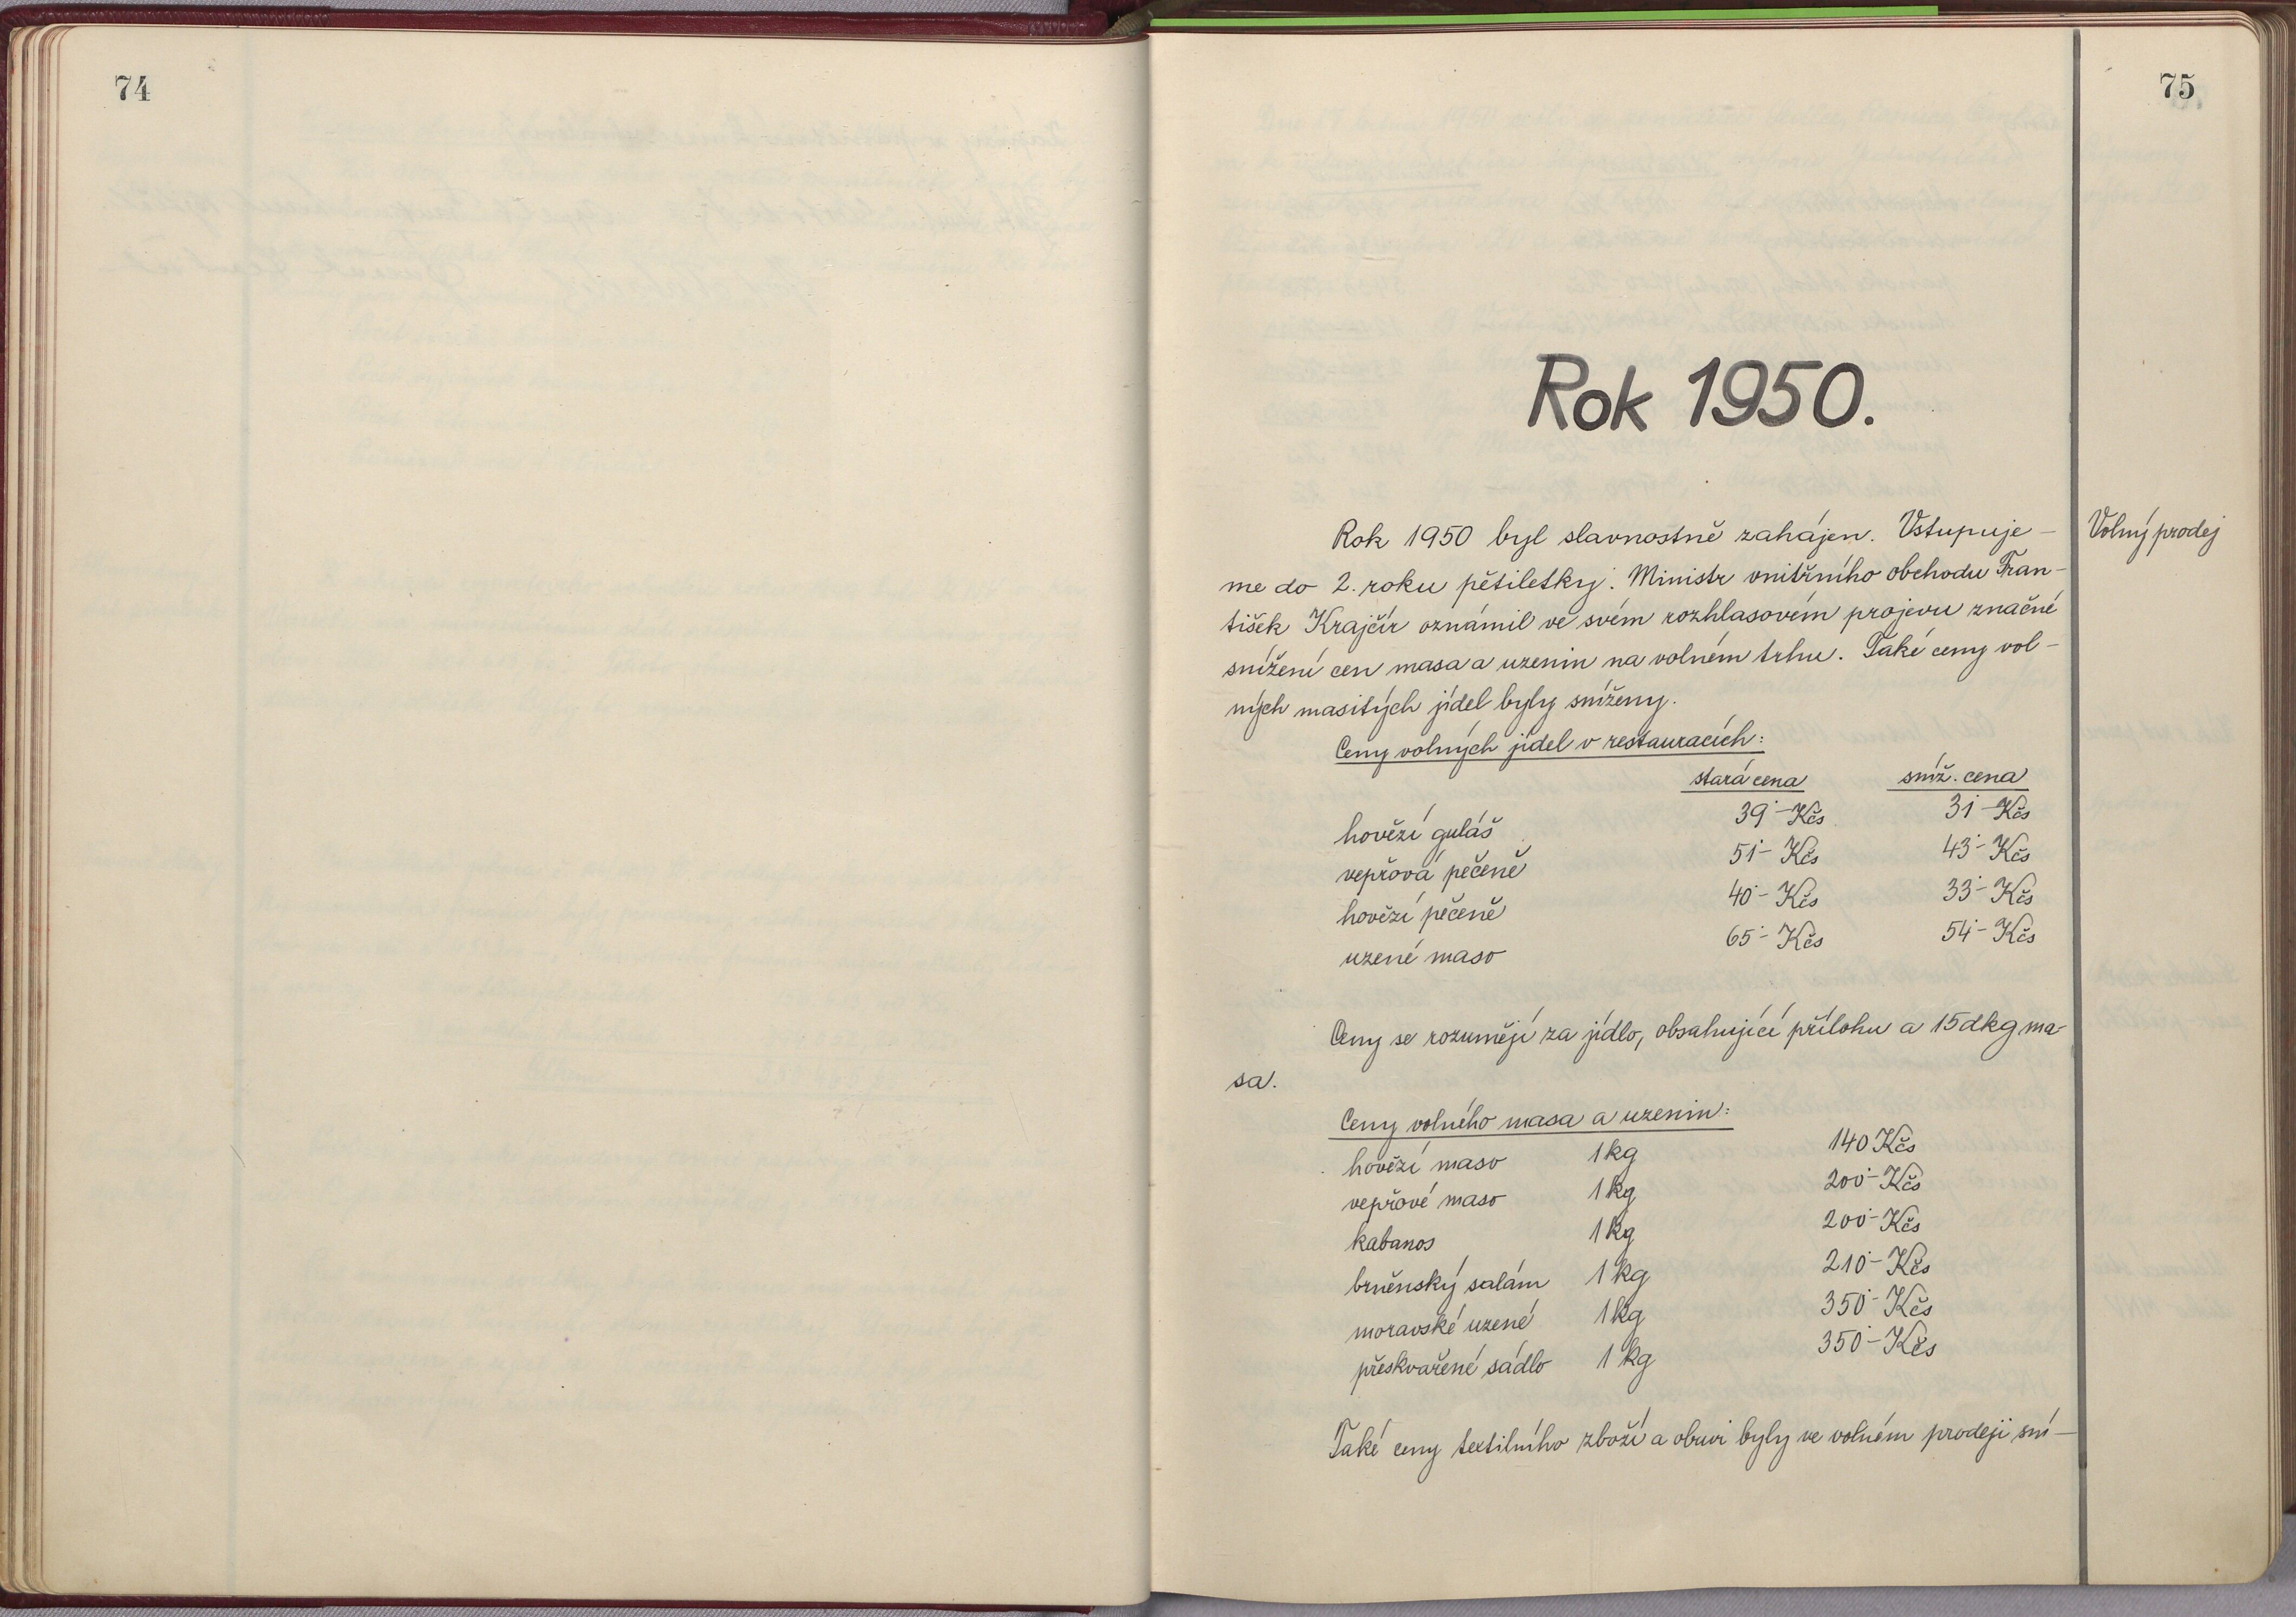 74
75
Rok 1950.
Volný prodej
Rok 1950 byl slavnostně zahájen. Vstupuje-
me do 2. roku pětiletky. Ministr vnitřního obchodu Fran-
tišek Krajčír oznámil ve svém rozhlasovém projevu značné
snížení cen masa a uzenin na volném trhu. Také ceny vol-
ných masitých jídel byly sníženy.
Ceny volných jídel v restauracích:
stará cena sníž. cena
hovězí guláš 39·- Kčs 31·- Kčs
vepřová pečeně 51·- Kčs 43·- Kčs
hovězí pečeně 40·- Kčs 33·- Kčs
uzené maso 65·- Kčs 54·- Kčs
Ceny se rozumějí za jídlo, obsahující přílohu a 15 dkg ma-
sa.
Ceny volného masa a uzenin:
hovězí maso 1 kg 140 Kčs
vepřové maso 1 kg 200·- Kčs
kabanos 1 kg 200·- Kčs
brněnský salám 1 kg 210·- Kčs
moravské uzené 1 kg 350·- Kčs
přeskvařené sádlo 1 kg 350·- Kčs
Také ceny textilního zboží a obuvi byly ve volném prodeji sní-